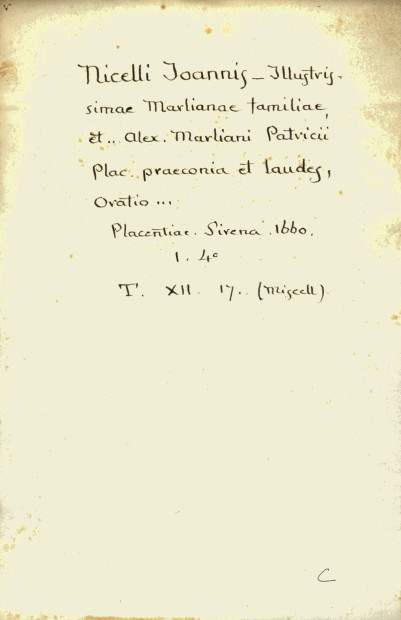 Nicelli Joannis – Illustris-
simae Marlianae familiae,
et .. Alex. Marliani Patricii
Plac. praeconia et laudes,
Oratio ...
Placentiae. Sirena. 1660.
1. 4°
T. XII. 17. (Miscell).
C